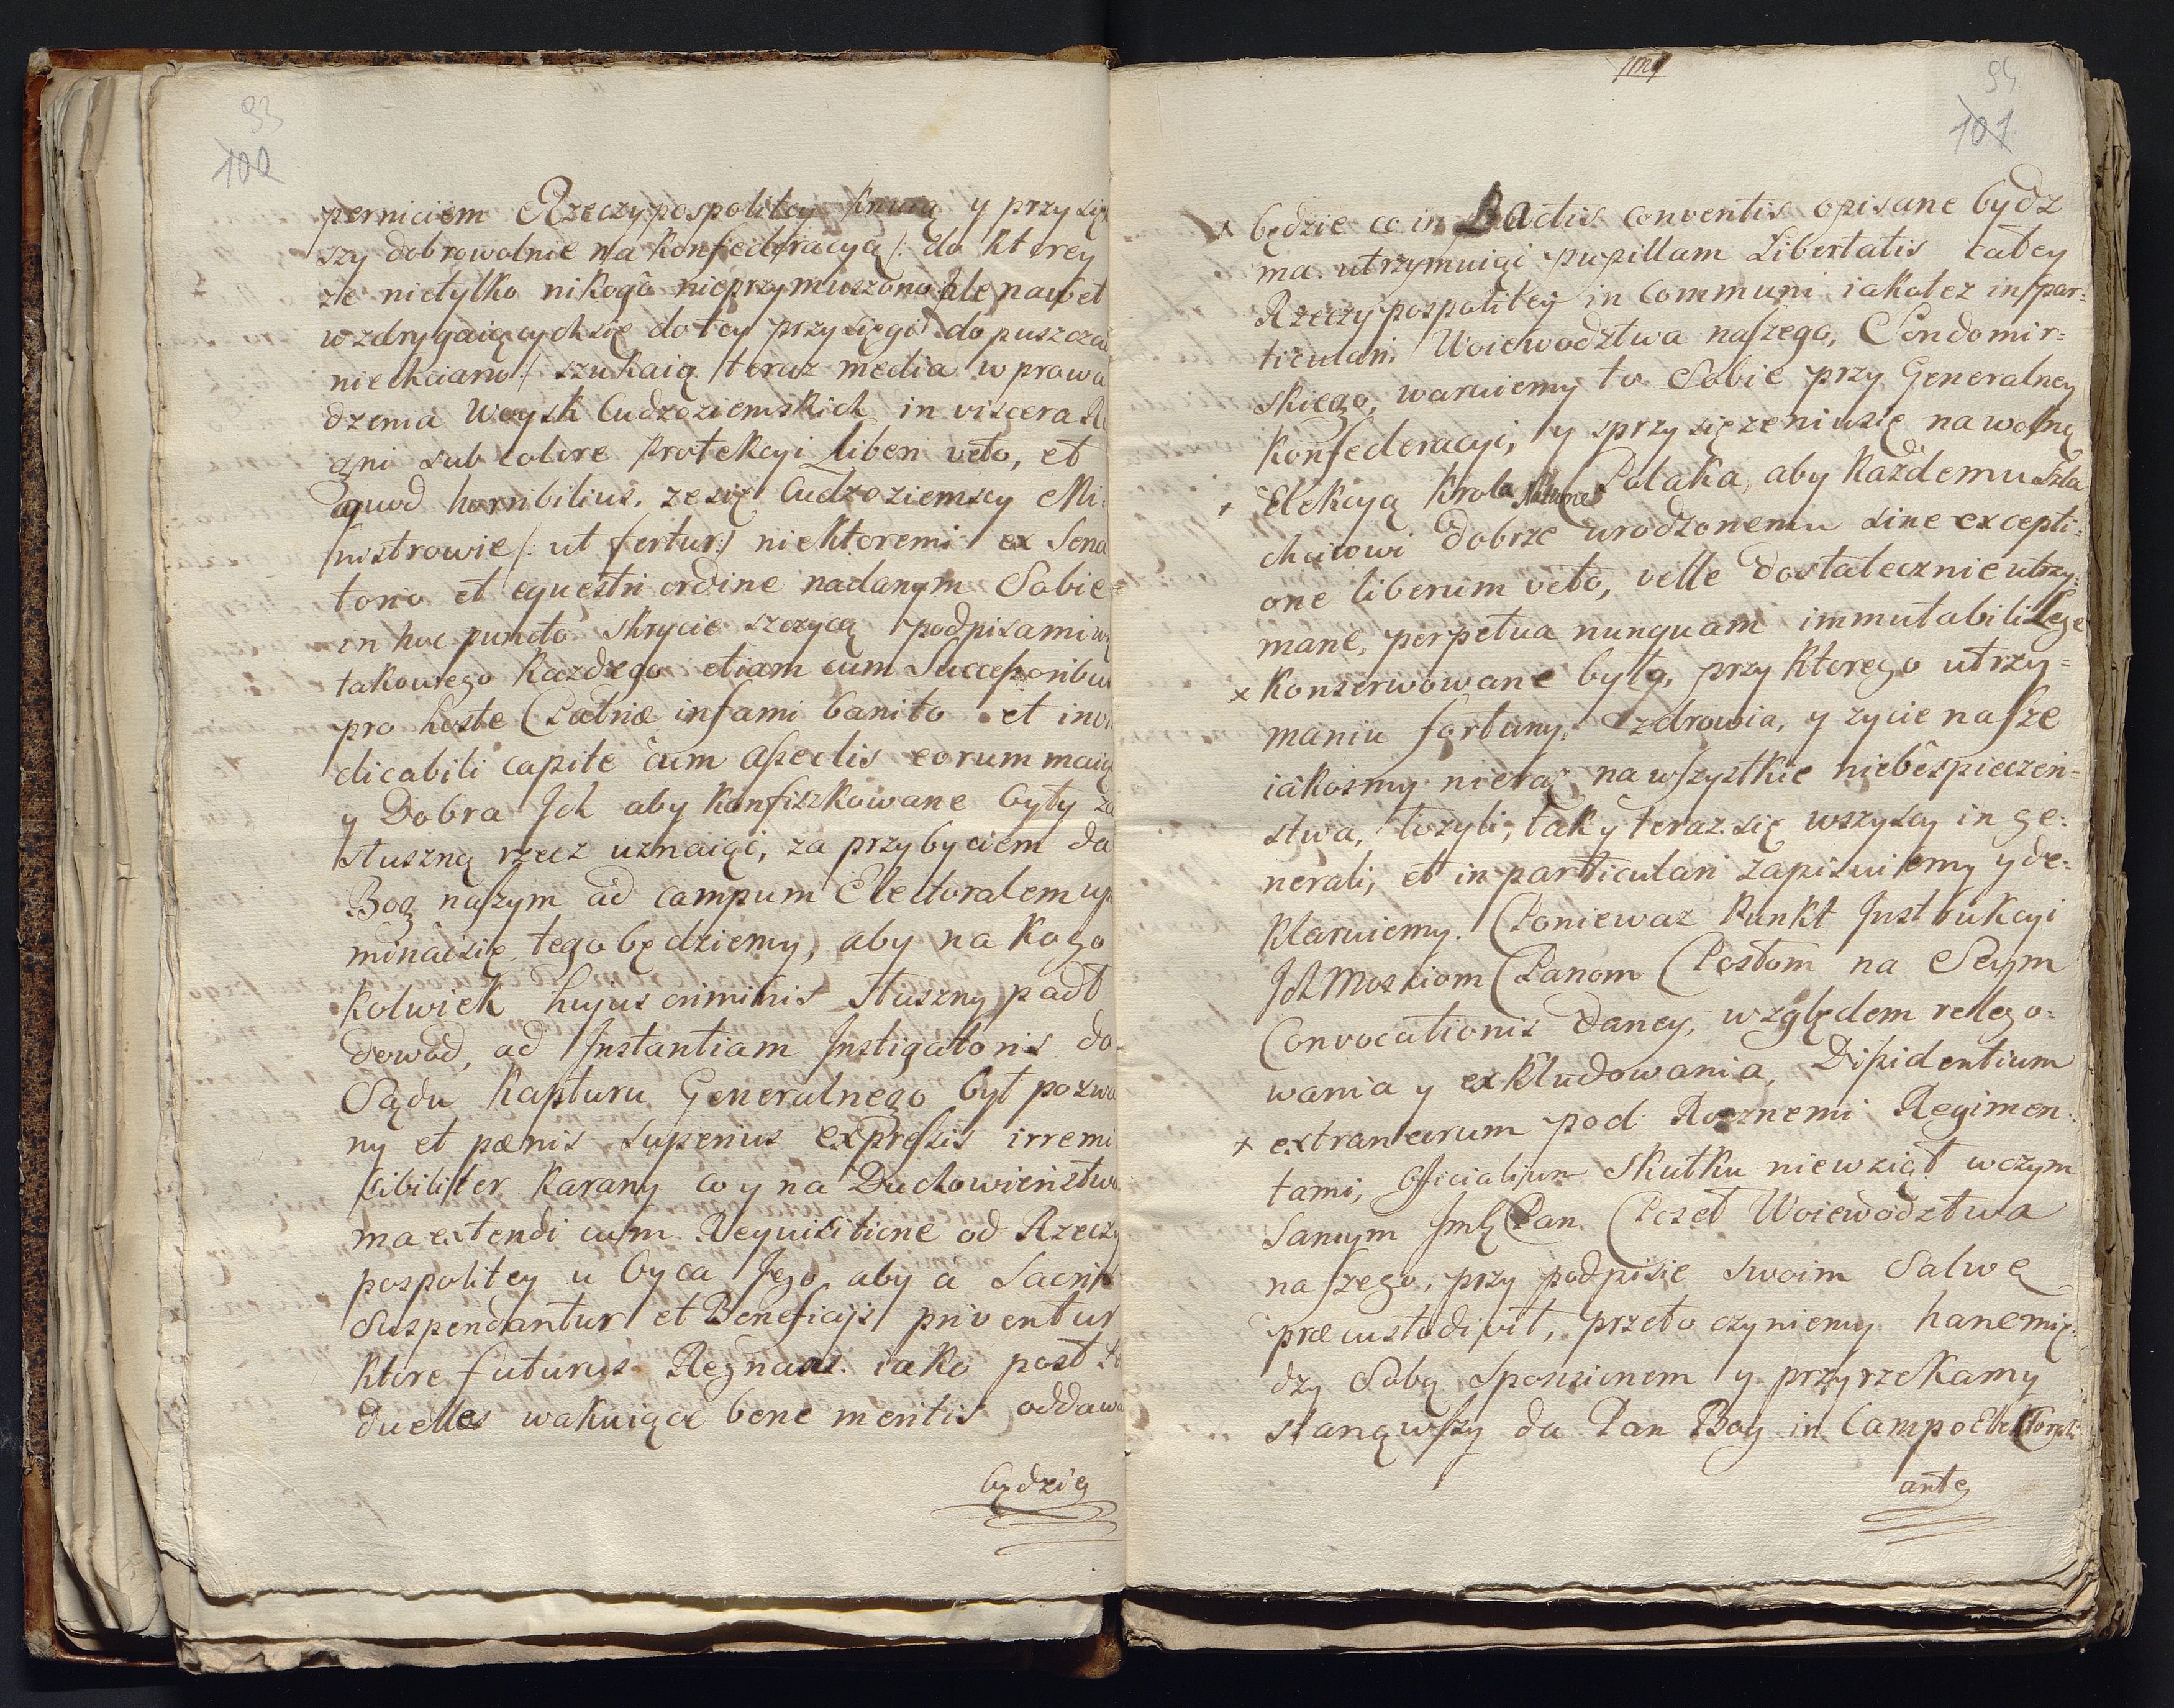 93
100
perniciem Rzeczypospolitey knuią y przysię
szy dobrowolnie na Konfederacyą /: do ktorey
ze nietylko nikogo nieprzymuszono Ale nawet
wzdrygaiącychsię do tey przysięgi dopuszcza
niechciano :/ szukaią teraz media wprowa
dzenia Woysk Cudzoziemskich in viscera Re
gni sub colore Protekcyi Liberi veto, et
quod horribilius, ze się Cudzoziemscy Mi:
nistrowie /: ut fertur :/ niektoremi ex Sena
torio et equestri ordine nadanym Sobie
in hoc puncto skrycie szczycą podpisami
takowego Kazdego etiam cum Successoribus
pro hoste Patriæ infami banito et invi
dicabili capite cum Asseclis eorum maią
y Dobra Jch aby Konfiszkowane były za
słuszną rzecz uznaiąc, za przybyciem da
Bog naszym ad campum Electoralem up
minacsię tego będziemy, aby na Kogo
Kolwiek hujus criminis słuszny padł
dowod, ad Instantiam Instigatoris do
Sądu Kapturu Generalnego był pozwa
ny et pœnis superius expressis irremi
sibiliter Karany co y na Duchowieństwo
ma extendi cum Requisitione od Rzeczy
pospolitey u Oyca Sgo, aby a Sacris
Suspendantur et Beneficijs priventur
ktore futurus Regnans iako post
duelles wakuiące bene meritis oddawa
będzie
94
101
będzie co in Pactis Conventis opisane bydz
ma utrzymuiąc pupillam Libertatis całey
Rzeczypospolitey in Communi iakotez in par:
ticulari Woiewodztwa naszego, Sendomir=
skiego, waruiemy to Sobie przy Generalney
Konfederacyi, y sprzysięzeniusię na wolną
Elekcyą Krola Polaka, aby Kazdemu Szla
chcicowi dobrze urodzonemu sine excepti:
one liberum veto, velle dostatecznie utrzy:
mane, perpetua nunquam immutabili Lege
Konserwowane było, przy ktorego utrzy=
maniu fortuny, zdrowia, y zycie nasze
iakosmy nieraz na wszystkie niebespieczeń=
stwa, łozyli, tak y teraz się wszyscy in ge:
nerali, et in particulari zapisuiemy y de:
klaruiemy. Poniewaz Punkt Instrukcyi
Jch Mosciom Panom Posłom na Seym
Convocationis daney, względem relego:
wania y exkludowania, Dissidentium
extraneorum pod Roznemi Regimen:
tami, Officialium Skutku niewziął w czym
Samym Jmć Pan Poseł Woiewodztwa
naszego, przy podpisie swoim Salwę
præcustodivit, przeto czyniemy hanc mię:
dzy Sobą Sponsionem y przyrzekamy
stanąwszy da Pan Bog in Campo Electorali
ante